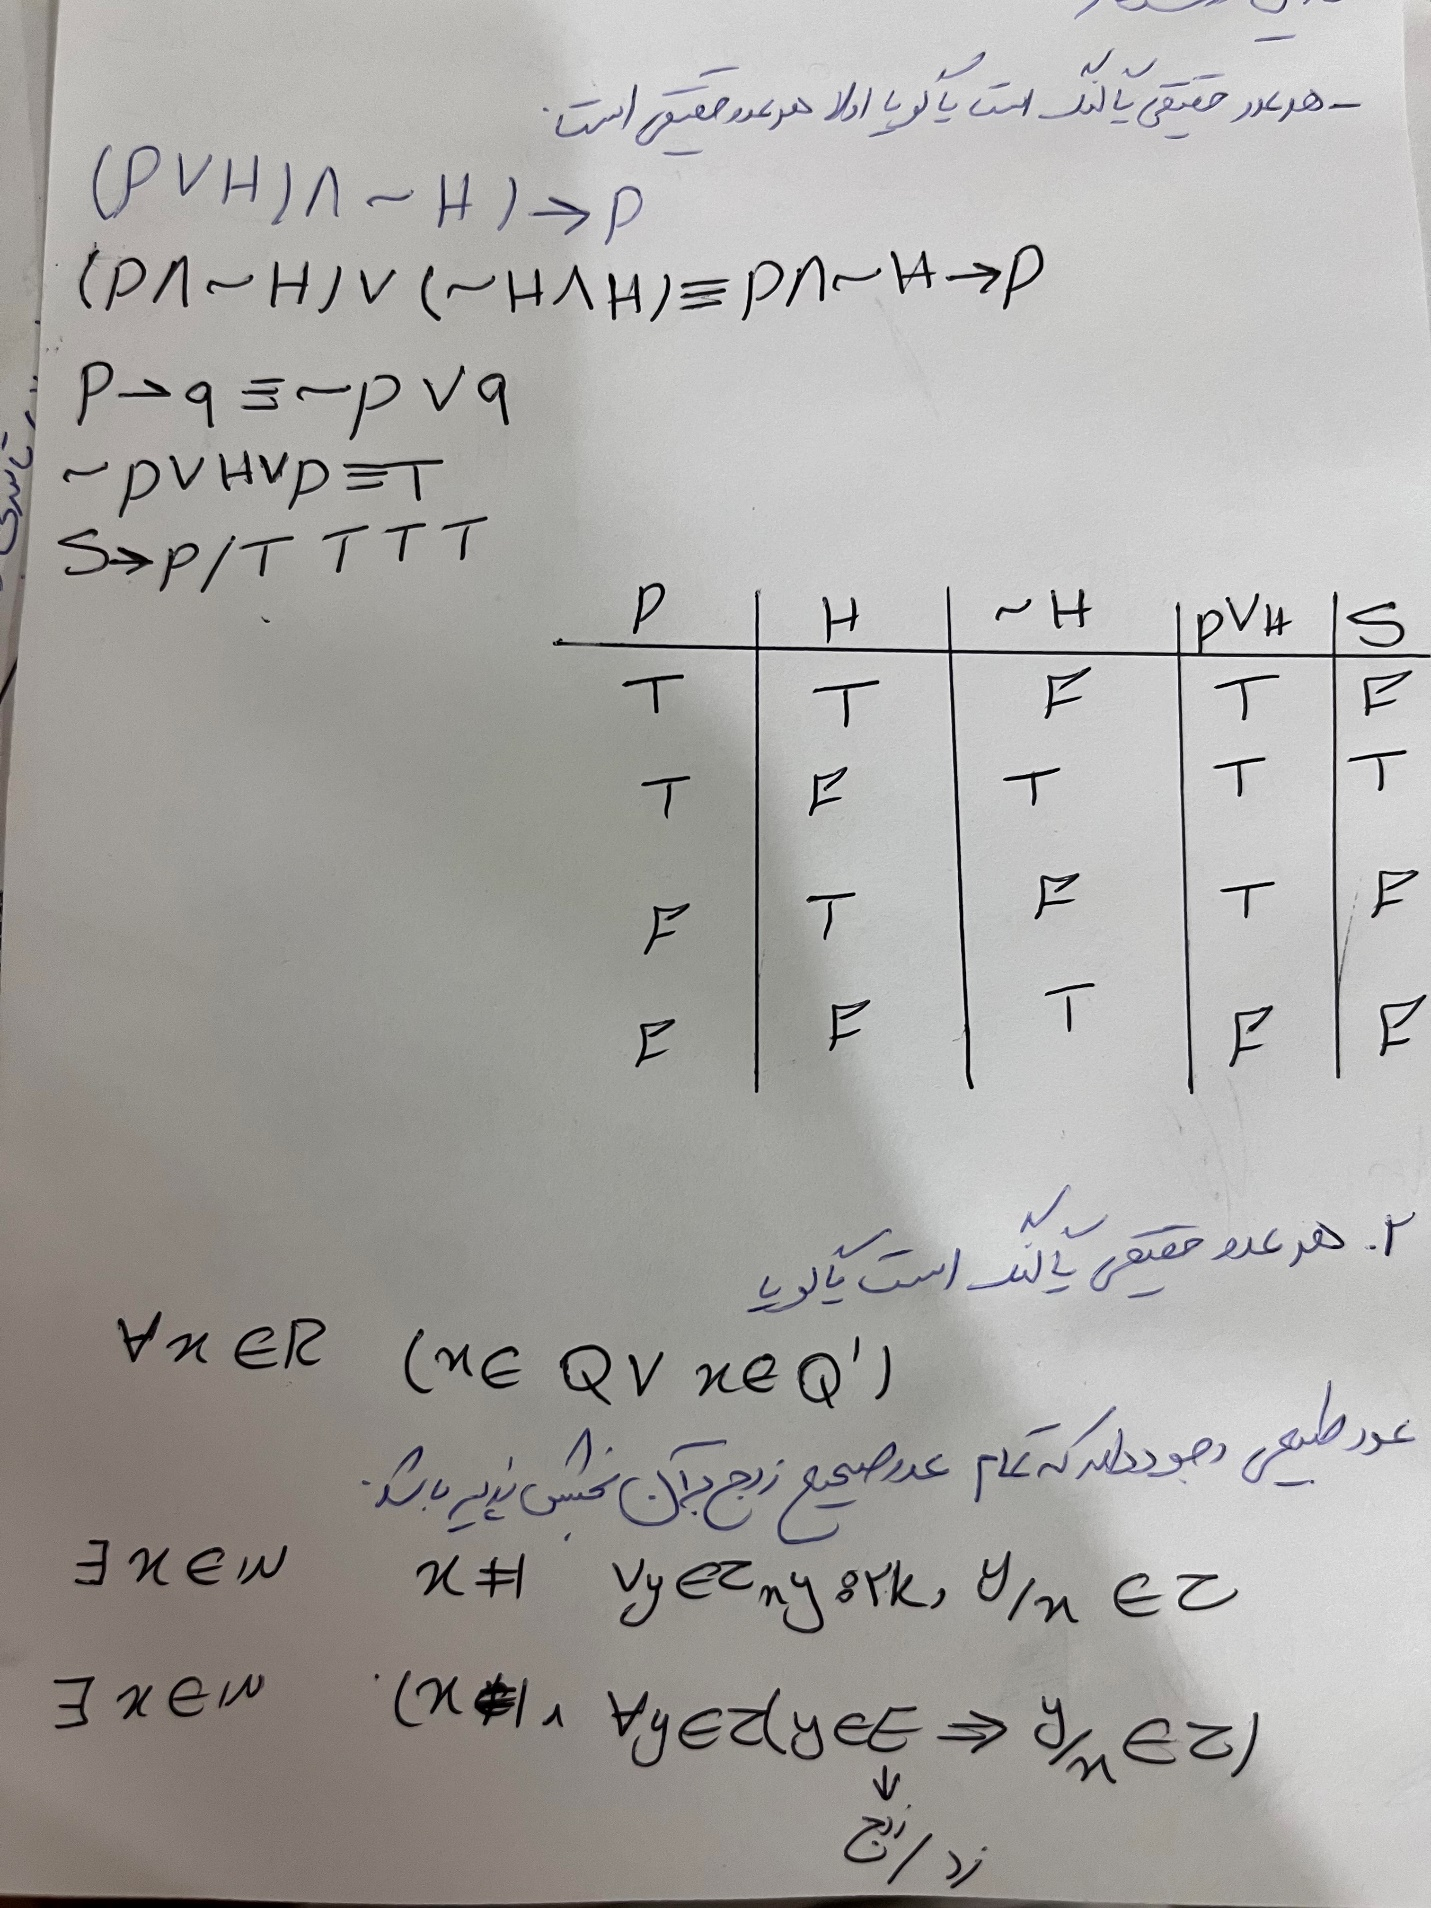 - هر عدد حقیقی یا گنگ است یا گویا اولا هر عدد حقیقی است.
(P∨H)∧~H)→P
(P∧~H)∨(~H∧H)≡P∧~H→P
P→q≡~p∨q
~p∨H∨p≡T
S→P/T T T T
P | H | ~H | p∨H | S
T | T | F | T | F
T | F | T | T | T
F | T | F | T | F
F | F | T | F | F
۲. هر عدد حقیقی یا گنگ است یا گویا
∀x∈R (x∈Q∨x∈Q')
عدد طبیعی وجود دارد که تمام عدد صحیح زوج بر آن بخش پذیر باشد.
∃x∈N x≠1 ∀y∈Z y:2k, y/x∈Z
∃x∈N (x≠1∧ ∀y∈Z(y∈E ⇒ y/x∈Z)
↓
زوج / زد